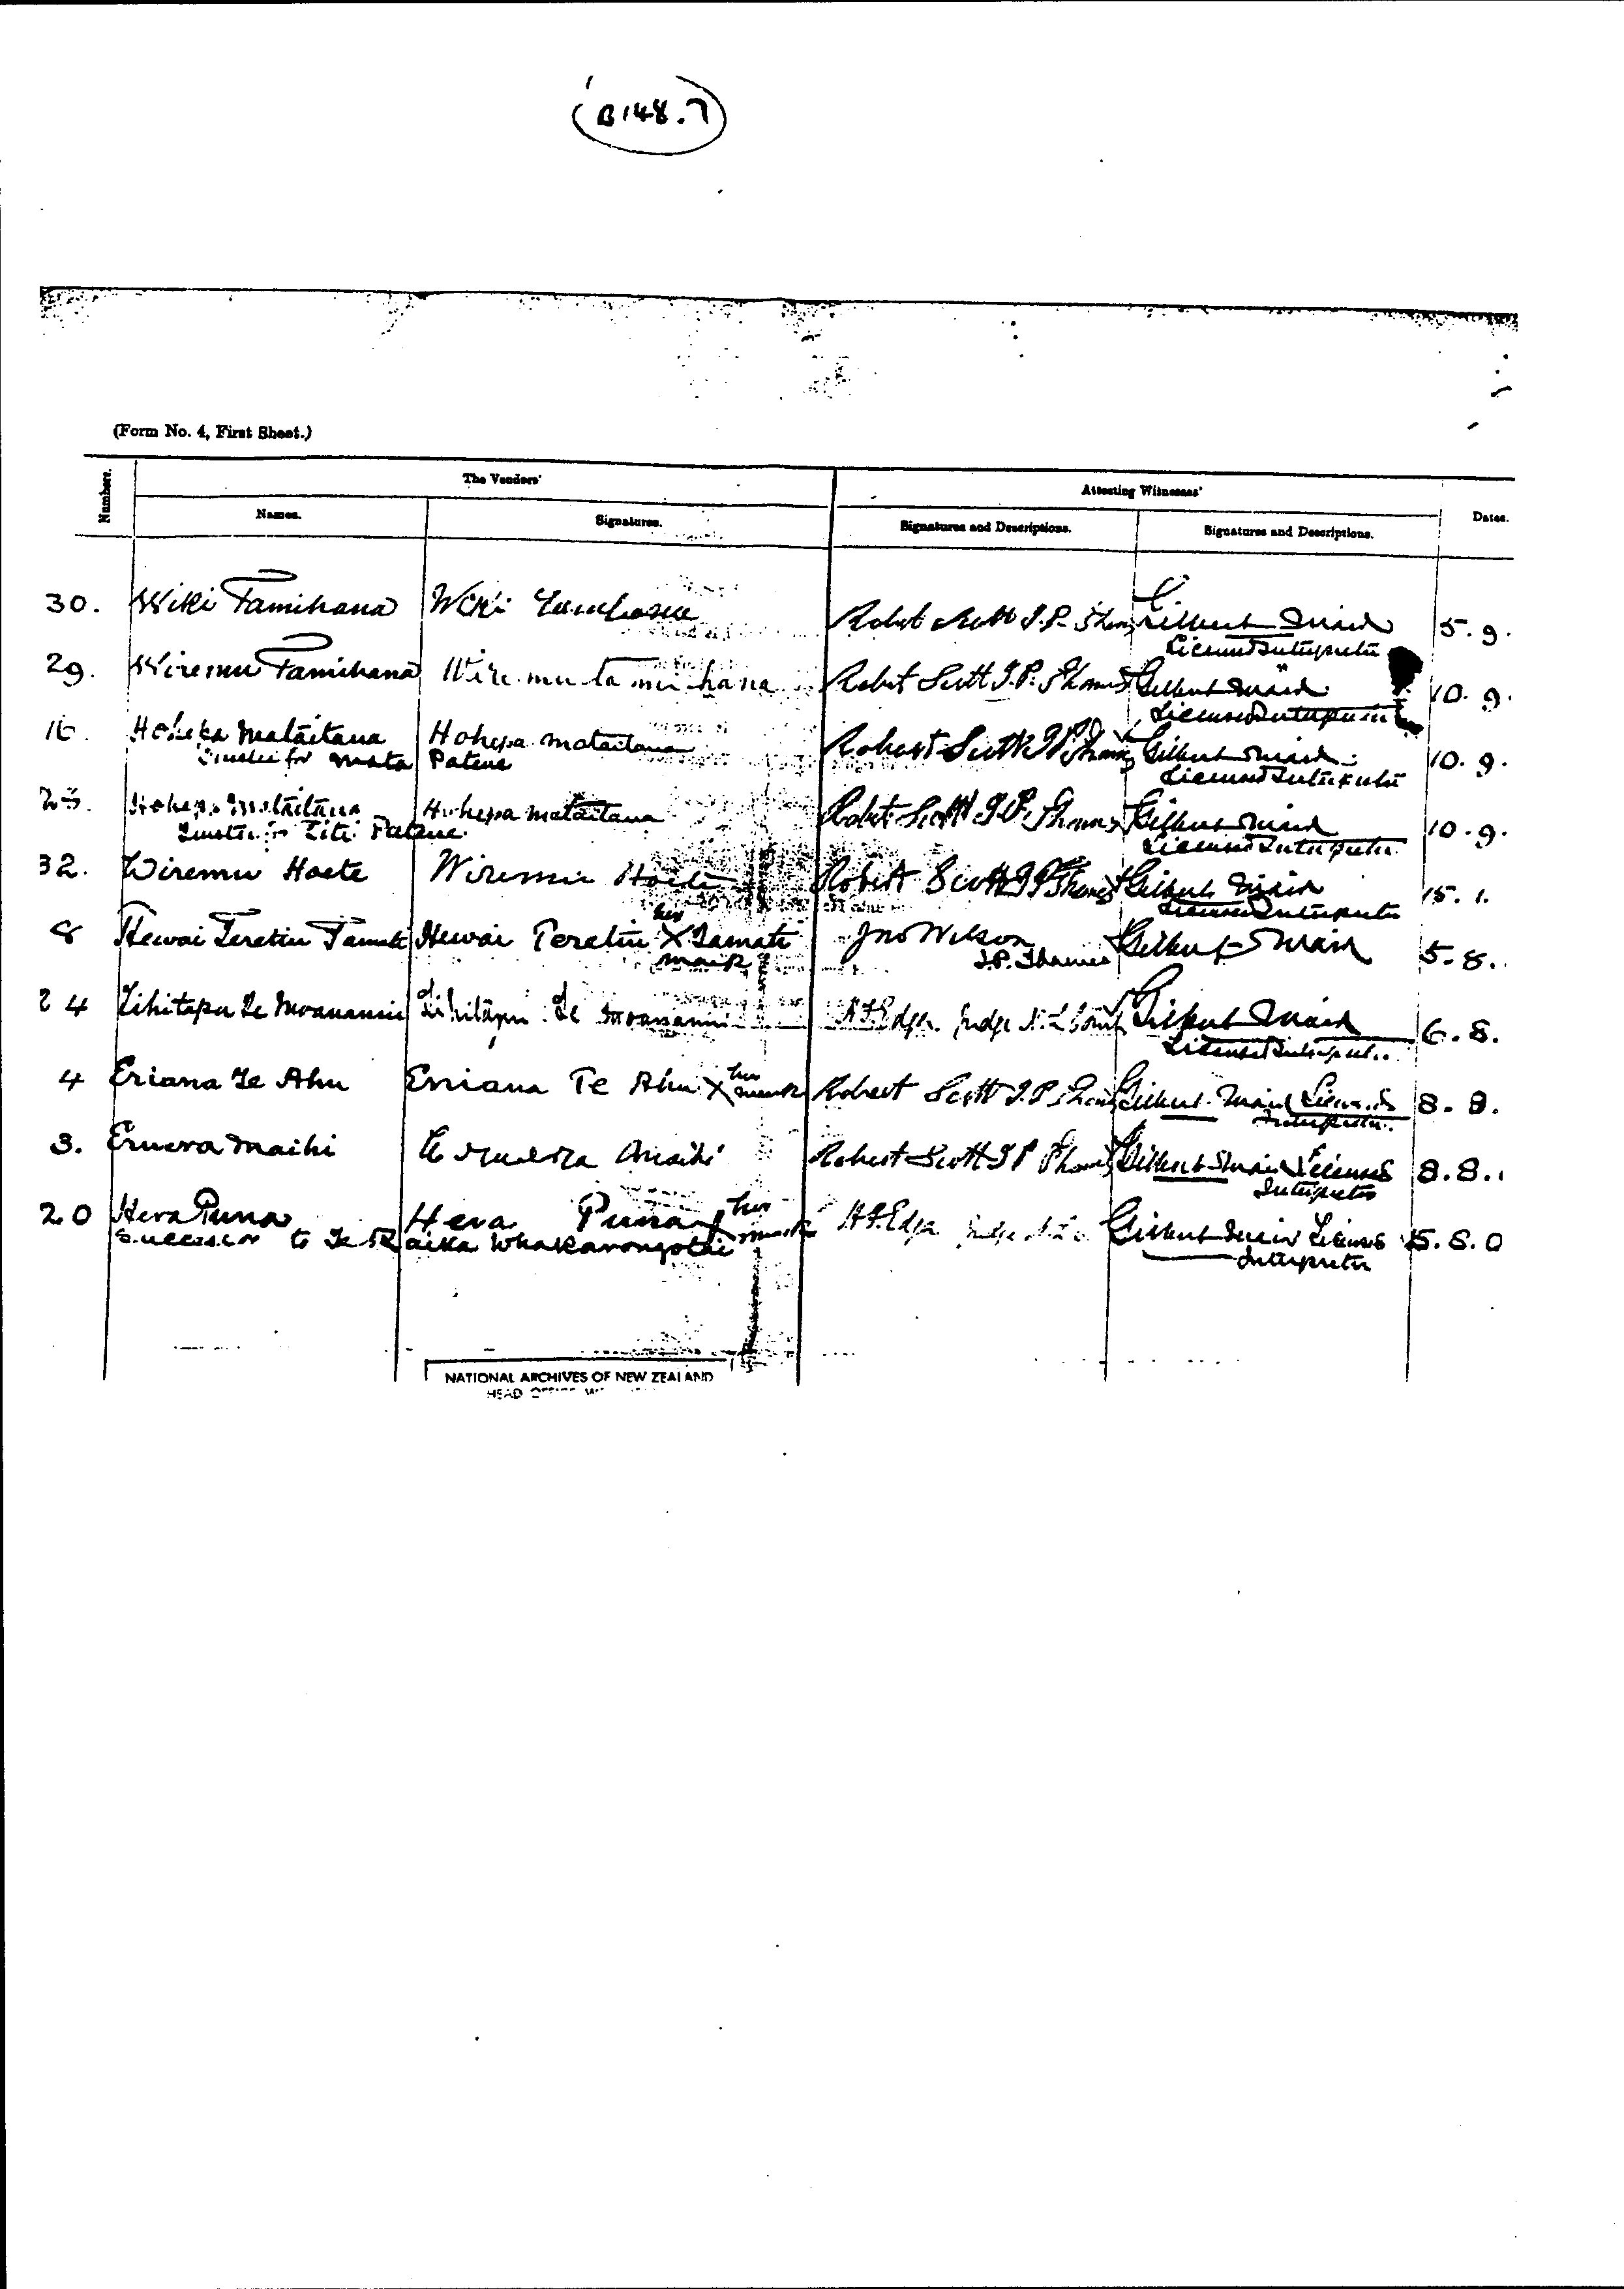 (B148.7)
(Form No. 4, First Sheet.)
Numbers.
The Vendors'
Attesting Witnesses'
Names.
Signatures.
Signatures and Descriptions.
Signatures and Descriptions.
Dates.
30. Wiki Tamihana Wiki Tamihana Robert Scott J.P. Thames Gilbert Mair 5.9.
Licensed Interpreter
29. Wiremu Tamihana Wiremu tamihana Robert Scott J.P. Thames Gilbert Mair 10.9.
Licensed Interpreter
16. Hohepa Mataitaua Hohepa mataitaua Robert Scott J.P. Thames Gilbert Mair 10.9.
Trustee for Mata Patene Licensed Interpreter
Hohepa Mataitaua Hohepa mataitaua Robert Scott J.P. Thames Gilbert Mair 10.9.
Trustee for Titi Patene Licensed Interpreter
32. Wiremu Hoete Wiremu Hoete Robert Scott J.P. Thames Gilbert Mair 15.1.
Licensed Interpreter
8 Hewai Teretiu Tamati Hewai Teretiu her X Tamati Jno Wilson Gilbert Mair 5.8.
mark J.P. Thames
24 Tihitapu Te Moananui Tihitapu Te Moananui H.F. Edger Judge N.L. Court Gilbert Mair 6.8.
Licensed Interpreter
4 Eriana Te Ahu Eriana Te Ahu X her mark Robert Scott J.P. Thames Gilbert Mair Licensed 8.8.
Interpreter
3. Eruera Maihi Eruera Maihi Robert Scott J P Thames Gilbert Mair Licensed 8.8.
Interpreter
20 Hera Puna Hera Puna X her mark H.F. Edger Judge Gilbert Mair Licensed 15.8.0
Successor to Te Raika Whakarongotai Interpreter
NATIONAL ARCHIVES OF NEW ZEALAND
HEAD OFFICE